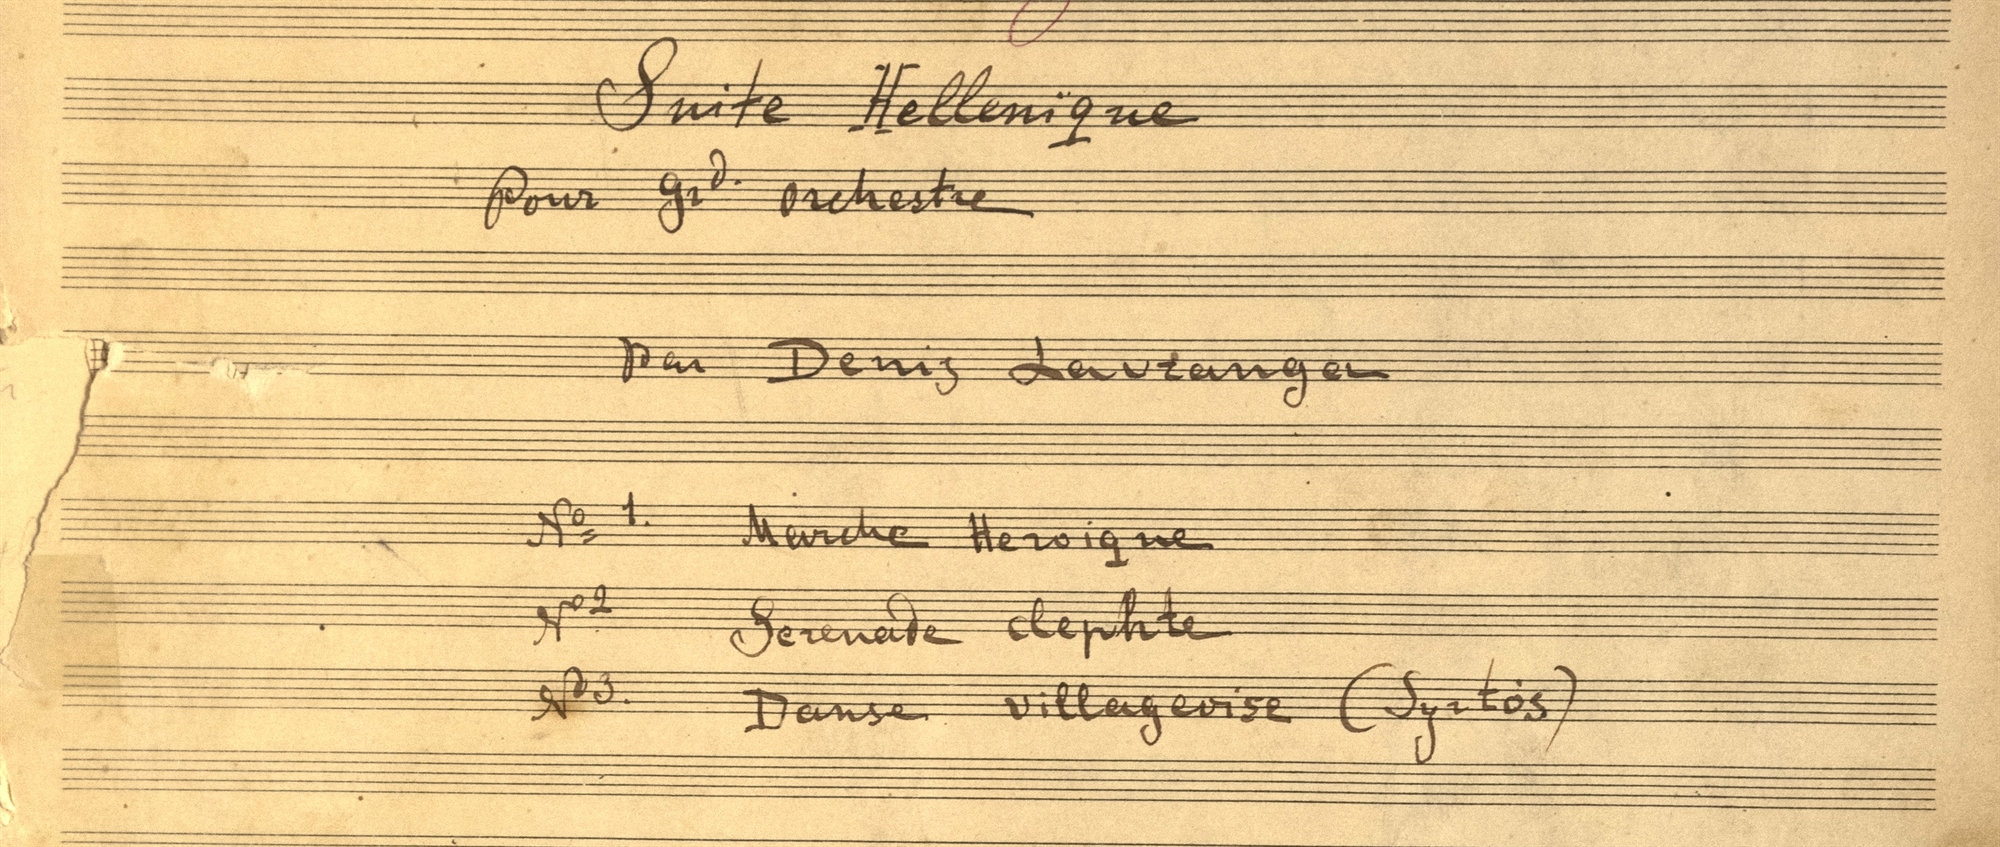 Suite Hellenique
Pour Grd. Orchestre
par Denis Lavranga
No 1. Marche Heroique
No 2 Serenade clephte
No 3. Danse villageoise (Syrtós)